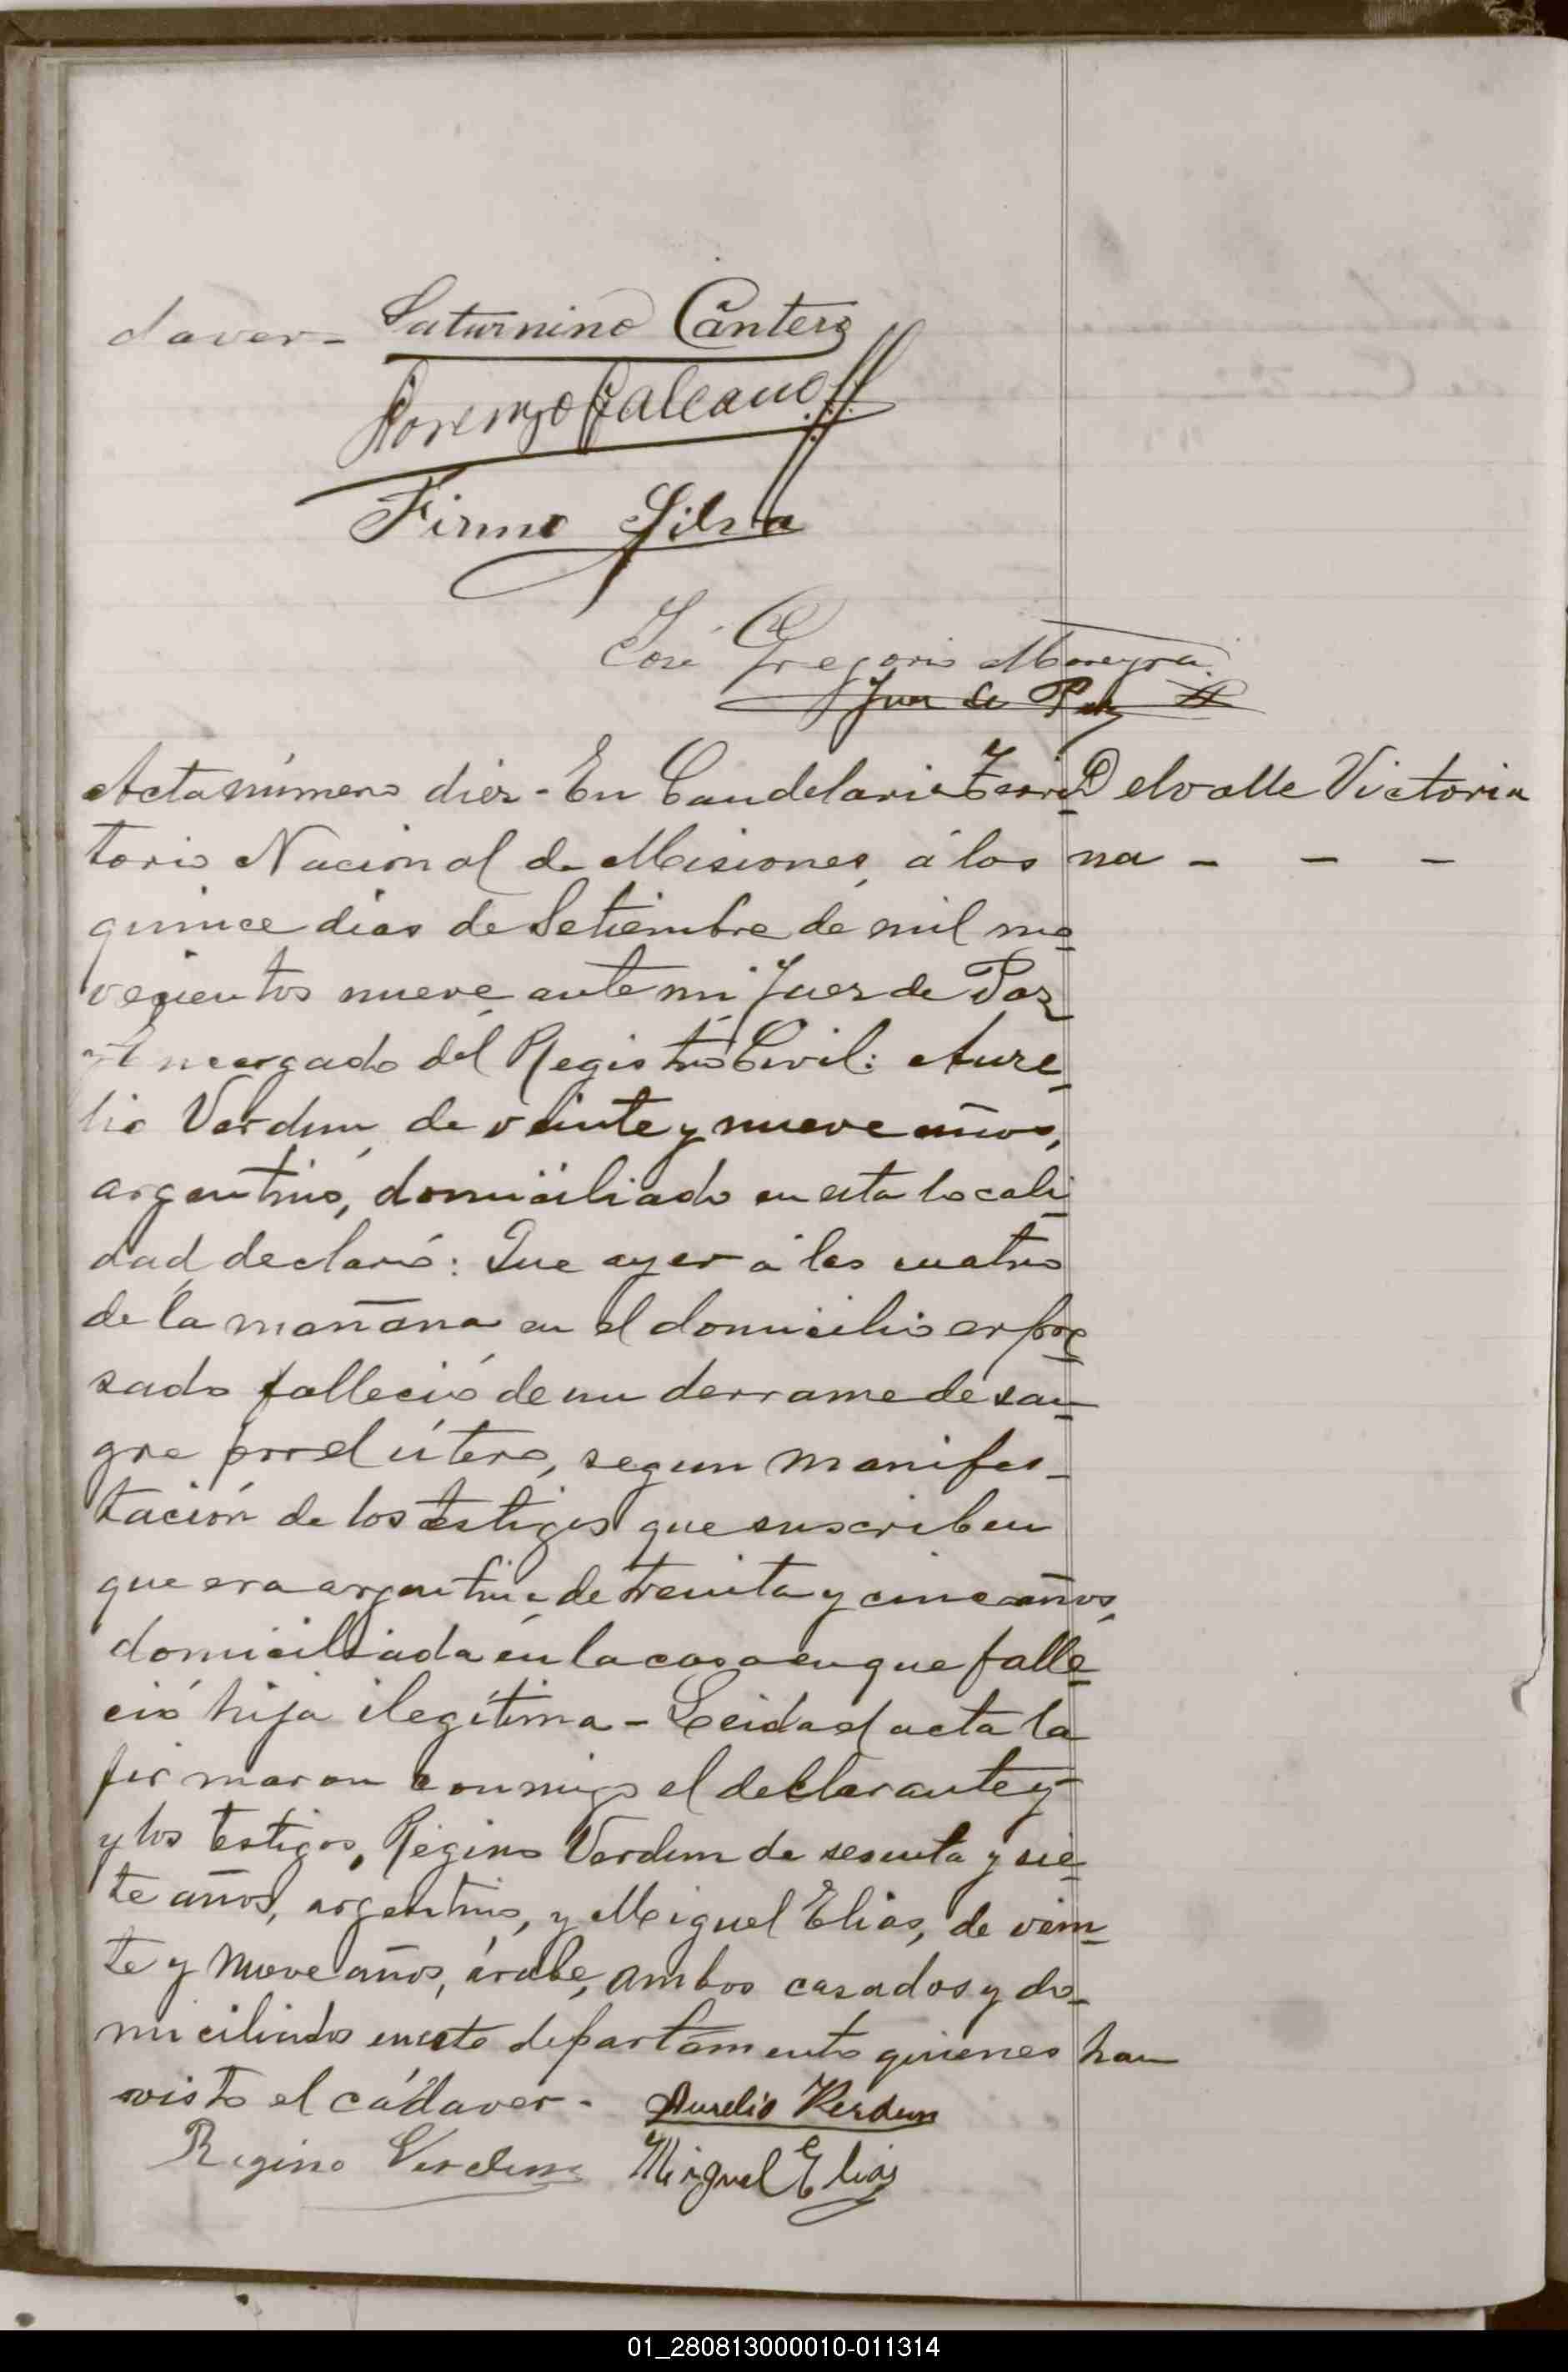 daver- Saturnino Cantero
Lorenzo Galeano
Firmo Silva
José Gregorio Moreyra
Juez de Paz
Acta número diez - En Candelaria Terri- Delvalle Victoria
torio Nacional de Misiones, á los na - - -
quince dias de Setiembre de mil no-
vecientos nueve, ante mi Juez de Paz
Encargado del Registro Civil: Aure-
lio Verdun, de veinte y nueve años,
argentino, domiciliado en esta locali-
dad, declaró: Que ayer á las cuatro
de la mañana en el domicilio expre-
sado falleció de un derrame de san-
gre por el útero, segun manifes-
tación de los testigos que suscriben
que era argentina de treinta y cinco años,
domiciliada en la casa en que falle-
ció hija ilegítima - Leida el acta la
firmaron conmigo el declarante y
y los testigos, Regino Verdun de sesenta y sie-
te años, argentino, y Miguel Elias, de vein-
te y nueve años, árabe, ambos casados y do-
miciliados en este departamento quienes han
visto el cádaver - Aurelio Verdun
Regino Verdun Miguel Elias
01_280813000010-011314